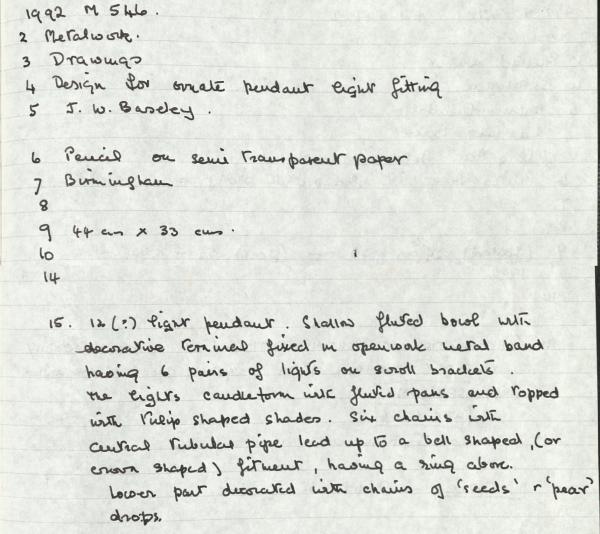 1992 M 546.
2 Metalwork.
3 Drawings
4 Design for ornate pendant light fitting
5 J. W. Baseley.
6 Pencil on semi transparent paper
7 Birmingham
8
9 44 cm x 33 cms.
10
14
15. 12 (?) light pendant. Shallow fluted bowl with
decorative terminal fixed in openwork metal band
having 6 pairs of lights on scroll brackets.
The lights candleform with fluted pans and topped
with tulip shaped shades. Six chains with
central tubular pipe lead up to a bell shaped, (or
crown shaped) fitment, having a ring above.
Lower part decorated with chains of 'reeds' & 'pear'
drops.